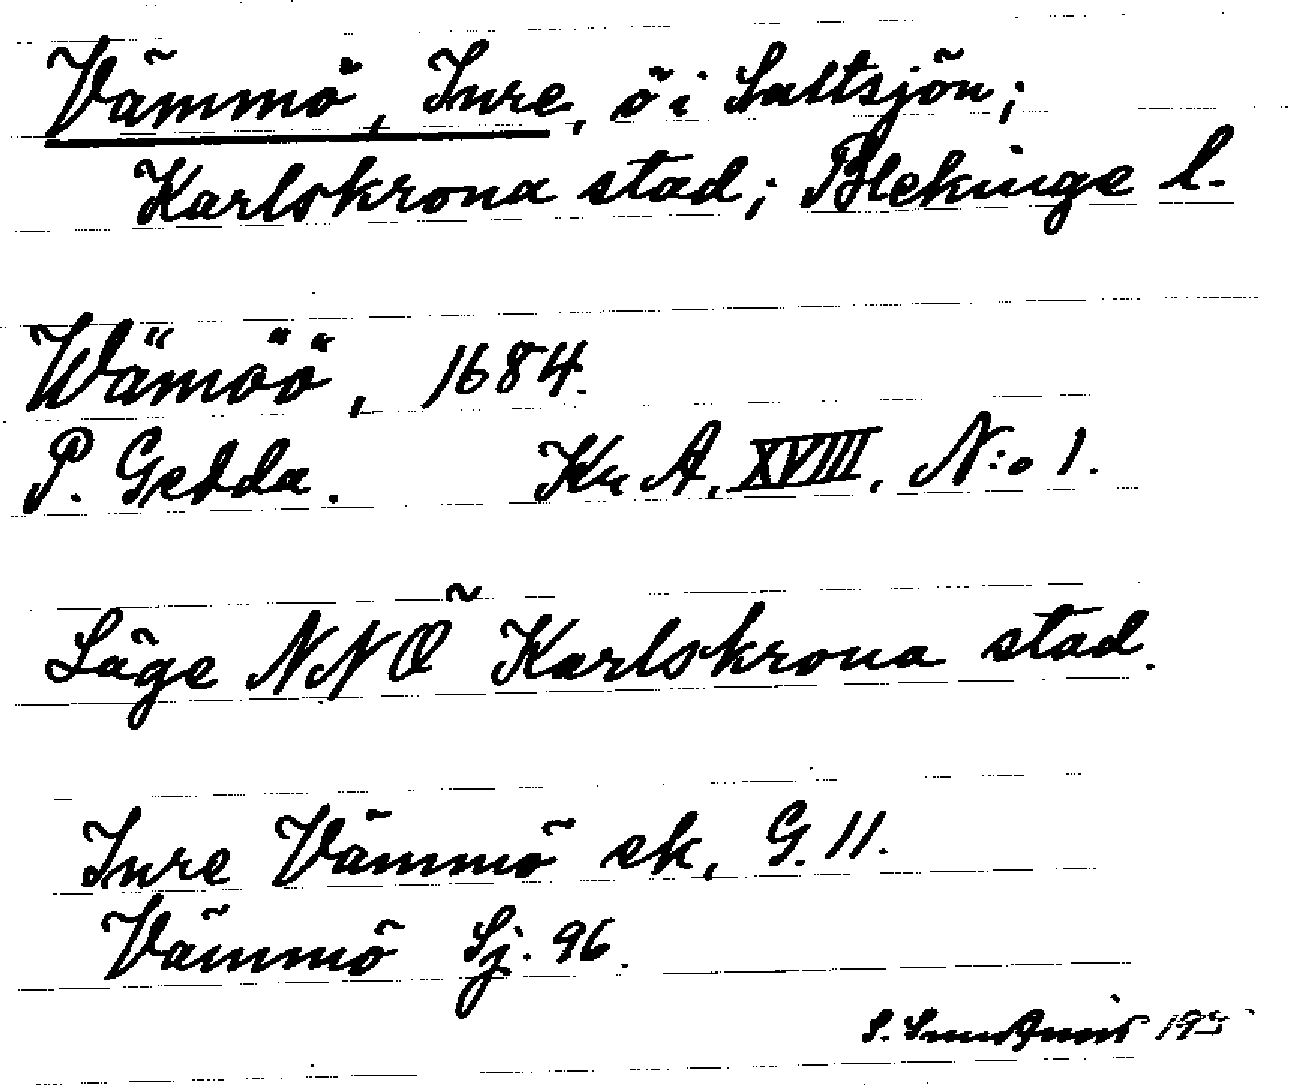 Vämmö, Inre, ö i Saltsjön;
Karlskrona stad; Blekinge l.
Wämöö, 1684.
P. Gedda. Kr. A. XVIII, N:o 1.
Läge NNÖ Karlskrona stad.
Inre Vämmö ek. G. 11.
Vämmö Sj. 96.
S.